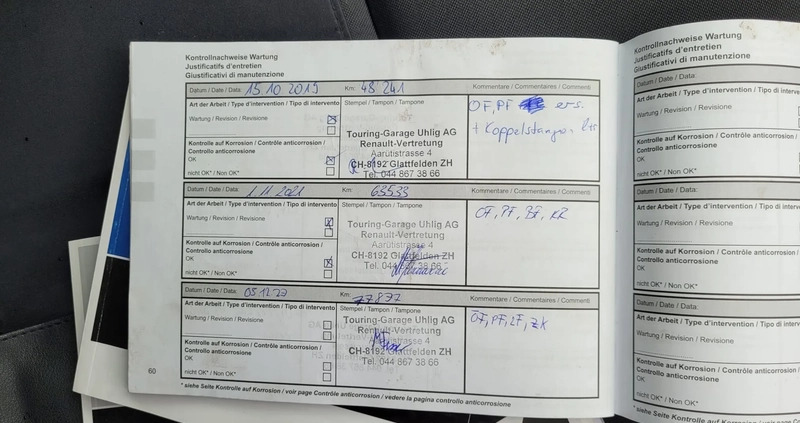 Kontrollnachweise Wartung
Justificatifs d'entretien
Giustificativi di manutenzione
Datum / Date / Data: 15 10 2019 Km: 48 241 Kommentare / Commentaires / Commenti
Art der Arbeit / Type d'intervention / Tipo di intervento
Stempel / Tampon / Tampone
Wartung / Revision / Revisione
Kontrolle auf Korrosion / Contrôle anticorrosion /
Controllo anticorrosione
OK
nicht OK* / Non OK*
Touring-Garage Uhlig AG
Renault-Vertretung
Aarütistrasse 4
CH-8192 Glattfelden ZH
Tel. 044 867 38 66
OF, PF ers.
+ Koppelstangen
Datum / Date / Data: 1.11 2021 Km: 63533 Kommentare / Commentaires / Commenti
Art der Arbeit / Type d'intervention / Tipo di intervento
Stempel / Tampon / Tampone
Wartung / Revision / Revisione
Kontrolle auf Korrosion / Contrôle anticorrosion /
Controllo anticorrosione
OK
nicht OK* / Non OK*
Touring-Garage Uhlig AG
Renault-Vertretung
Aarütistrasse 4
CH-8192 Glattfelden ZH
Tel. 044 867 38 66
OF, PF, BF,
Datum / Date / Data: 05.12.23 Km: 77877 Kommentare / Commentaires / Commenti
Art der Arbeit / Type d'intervention / Tipo di intervento
Stempel / Tampon / Tampone
Wartung / Revision / Revisione
Kontrolle auf Korrosion / Contrôle anticorrosion /
Controllo anticorrosione
OK
nicht OK* / Non OK*
Touring-Garage Uhlig AG
Renault-Vertretung
Aarütistrasse 4
CH-8192 Glattfelden ZH
Tel. 044 867 38 66
ÖF, PF, LF, ZK
60
* siehe Seite Kontrolle auf Korrosion / voir page Contrôle anticorrosion / vedere la pagina controllo anticorrosione
Kontrollnachweise Wartung
Justificatifs d'entretien
Giustificativi di manutenzione
Datum / Date / Data:
Art der Arbeit / Type d'intervention / Tipo di
Wartung / Revision / Revisione
Kontrolle auf Korrosion / Contrôle anticorrosion /
Controllo anticorrosione
OK
nicht OK* / Non OK*
Datum / Date / Data:
Art der Arbeit / Type d'intervention / Tipo di
Wartung / Revision / Revisione
Kontrolle auf Korrosion / Contrôle anticorrosion /
Controllo anticorrosione
OK
nicht OK* / Non OK*
Datum / Date / Data:
Art der Arbeit / Type d'intervention / Tipo di
Wartung / Revision / Revisione
Kontrolle auf Korrosion / Contrôle anticorrosion /
Controllo anticorrosione
OK
nicht OK* / Non OK*
* siehe Seite Kontrolle auf Korrosion / voir page